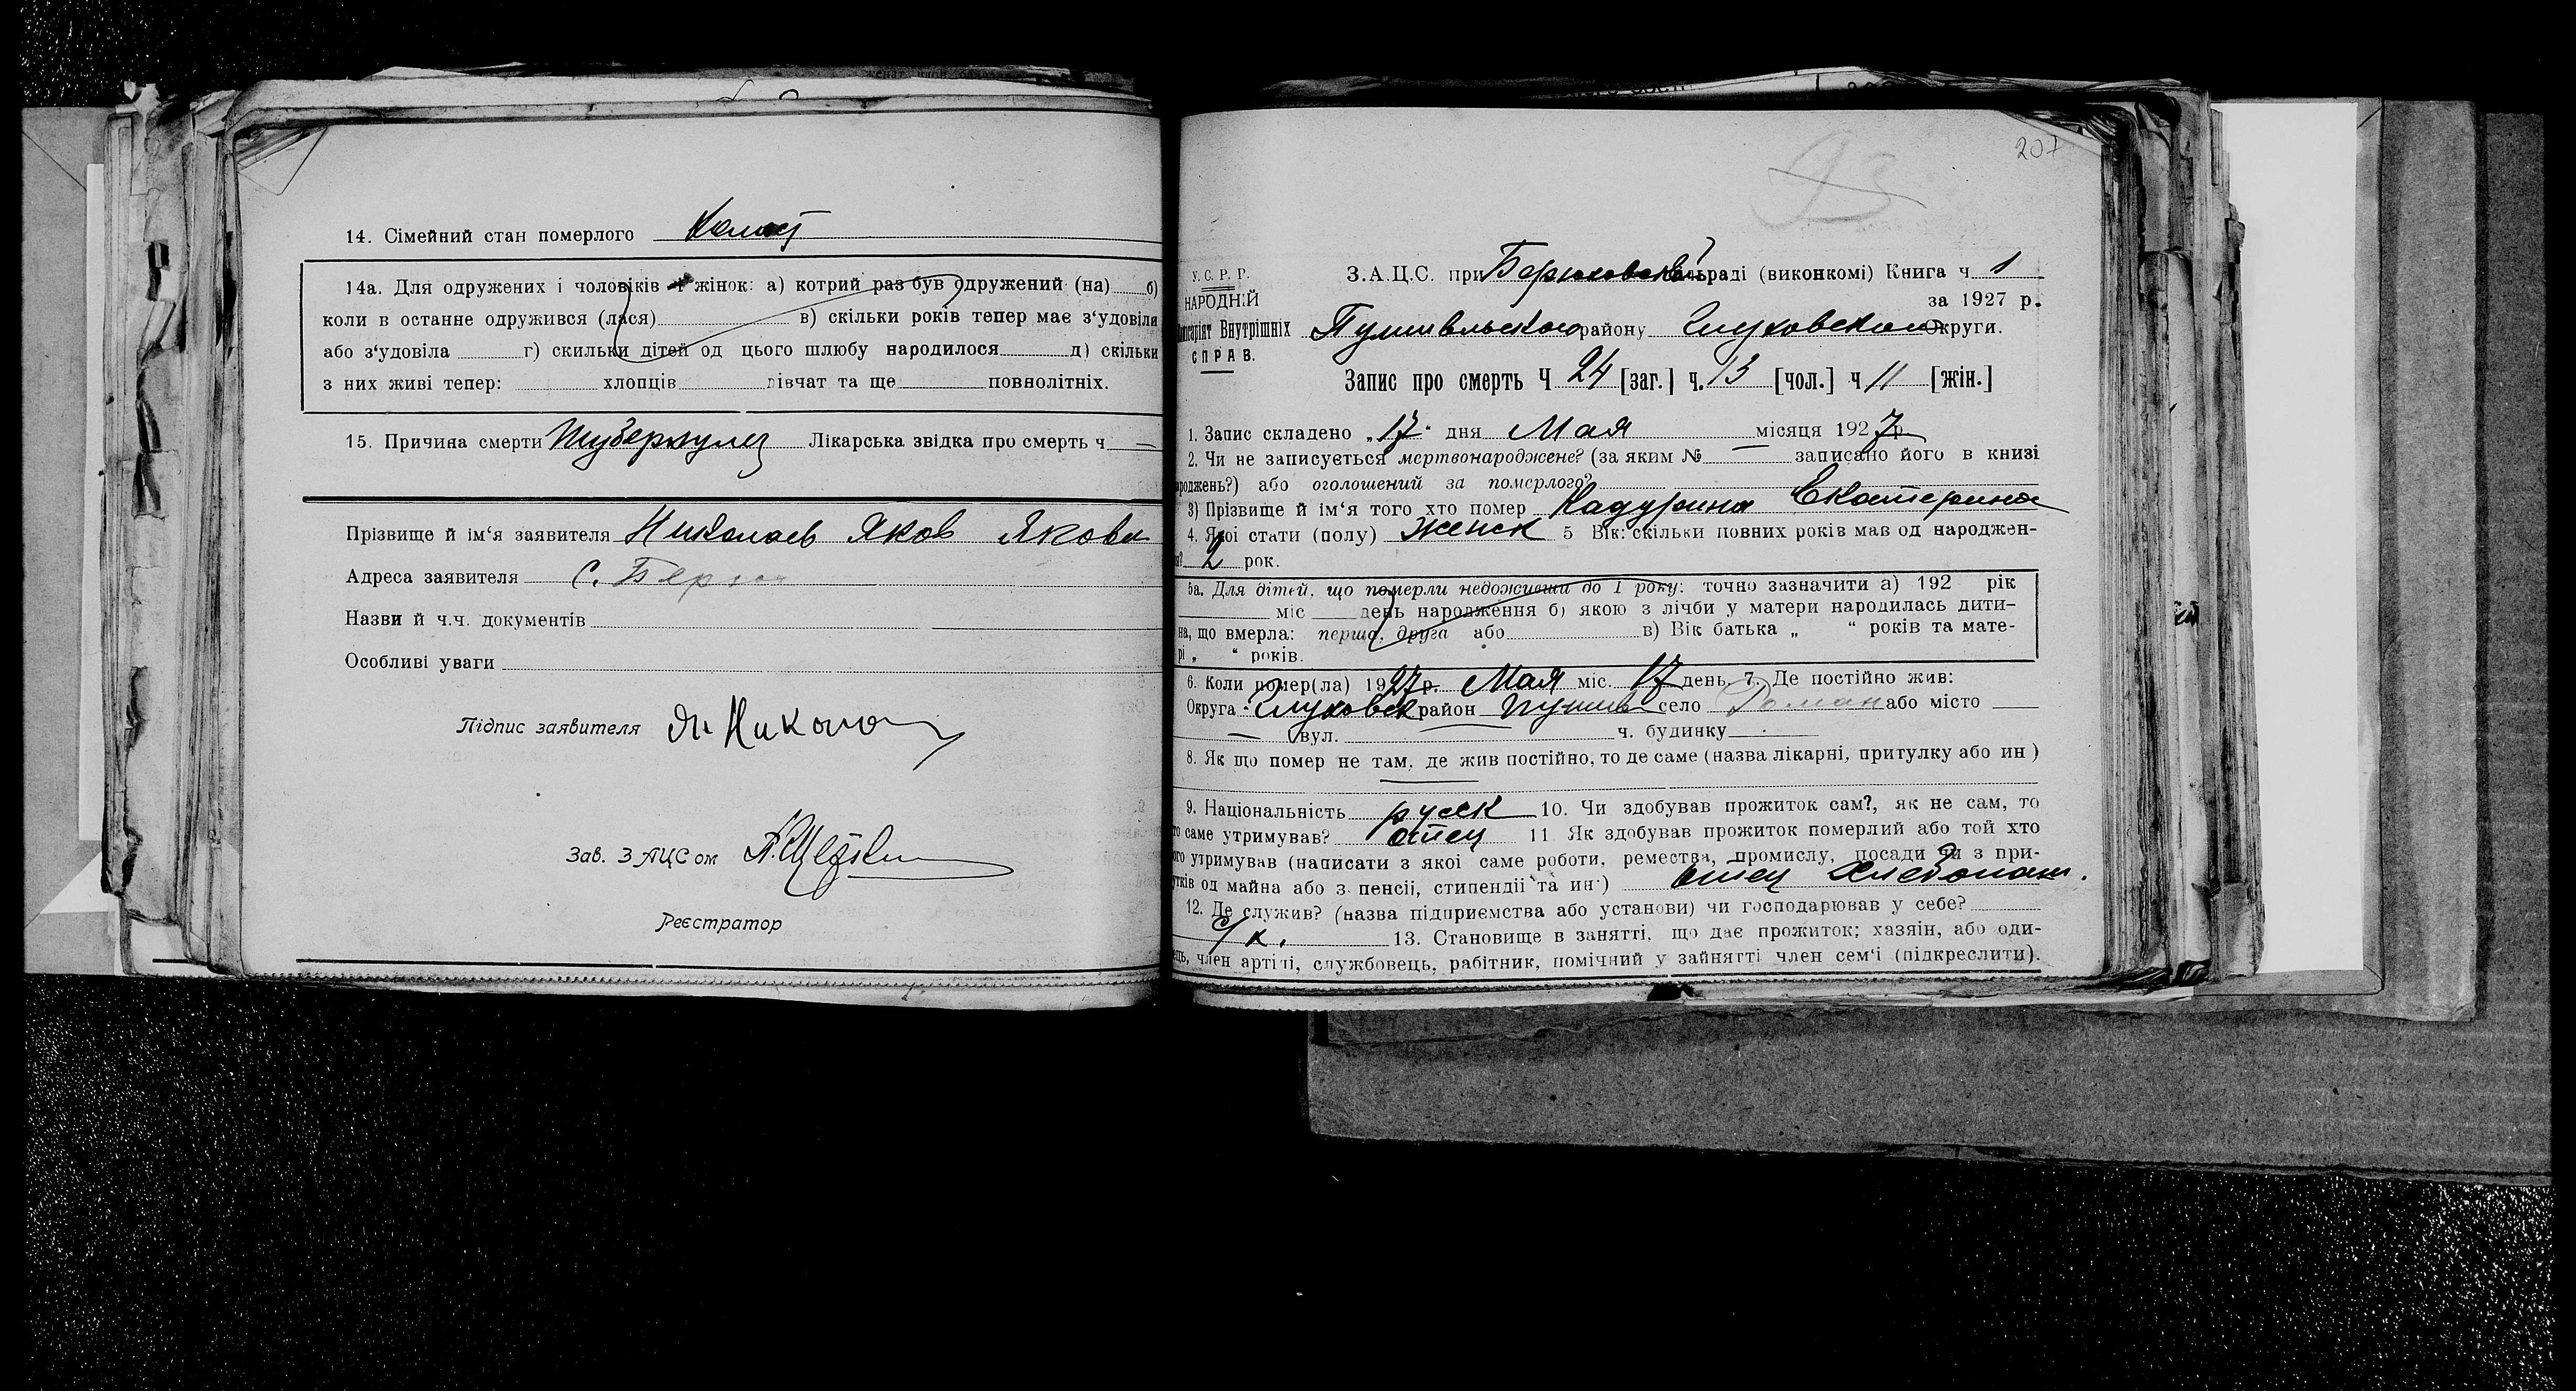 14. Сімейний стан померлого Холост
14а. Для одружених і чоловіків й жінок: а) котрий раз був одружений (на) б)
коли в останне одружився (лася) в) скільки років тепер має з‘удовіли
або з‘удовіла г) скильки дітей од цього шлюбу народилося д) скільки
з них живі тепер: хлопців дівчат та ще повнолітніх.
15. Причина смерти Туберкулез Лікарська звідка про смерть ч —
Прізвище й ім‘я заявителя Николаев Яков Яковл
Адреса заявителя С. Берюх
Назви й ч.ч. документів
Особливі уваги
Підпис заявителя Я. Николаев
Зав. ЗАЦСом
Реєстратор
207
93
У. С. Р. Р.
НАРОДНІЙ
Комісаріят Внутрішніх
СПРАВ.
З.А.Ц.С. при Берюховской сільраді (виконкомі) Книга ч 1
за 1927 р.
Путивльского району Глуховской Округи.
Запис про смерть Ч 24 [заг.] ч. 13 [чол.] ч 11 [жін.]
1. Запис складено „17“ дня Мая місяця 1927 р
2. Чи не записується мертвонароджене? (за яким № — записано його в книзі
роджень?) або оголошений за померлого?
3) Прізвище й ім‘я того хто помер Кадурина Екатерина
4. Якої стати (полу) женск 5 Вік: скільки повних років мав од народжен-
ня? 2 рок.
5а. Для дітей, що померли недоживши до 1 року: точно зазначити а) 192 рік
міс день народження б) якою з лічби у матери народилась дити-
на, що вмерла: перша, друга або в) Вік батька „ “ років та мате-
рі „ “ років.
6. Коли помер(ла) 1927 р. Мая міс. 17 день. 7. Де постійно жив:
Округа Глуховск район Путив село Роман або місто —
— вул. ч. будинку
8. Як що помер не там, де жив постійно, то де саме (назва лікарні, притулку або ин)
9. Національність русск 10. Чи здобував прожиток сам?, як не сам, то
то саме утримував? отец 11 Як здобував прожиток померлий або той хто
ого утримував (написати з якої саме роботи, ремества, промислу, посади чи з при-
утків од майна або з пенсії, стипендії та ин) отец Хлебопаш.
12. Де служив? (назва підприємства або установи) чи господарював у себе?
с/х. 13. Становище в занятті, що дає прожиток; хазяїн, або оди-
ець, член артілі, службовець, рабітник, помічний у зайнятті член сем‘ї (підкреслити).